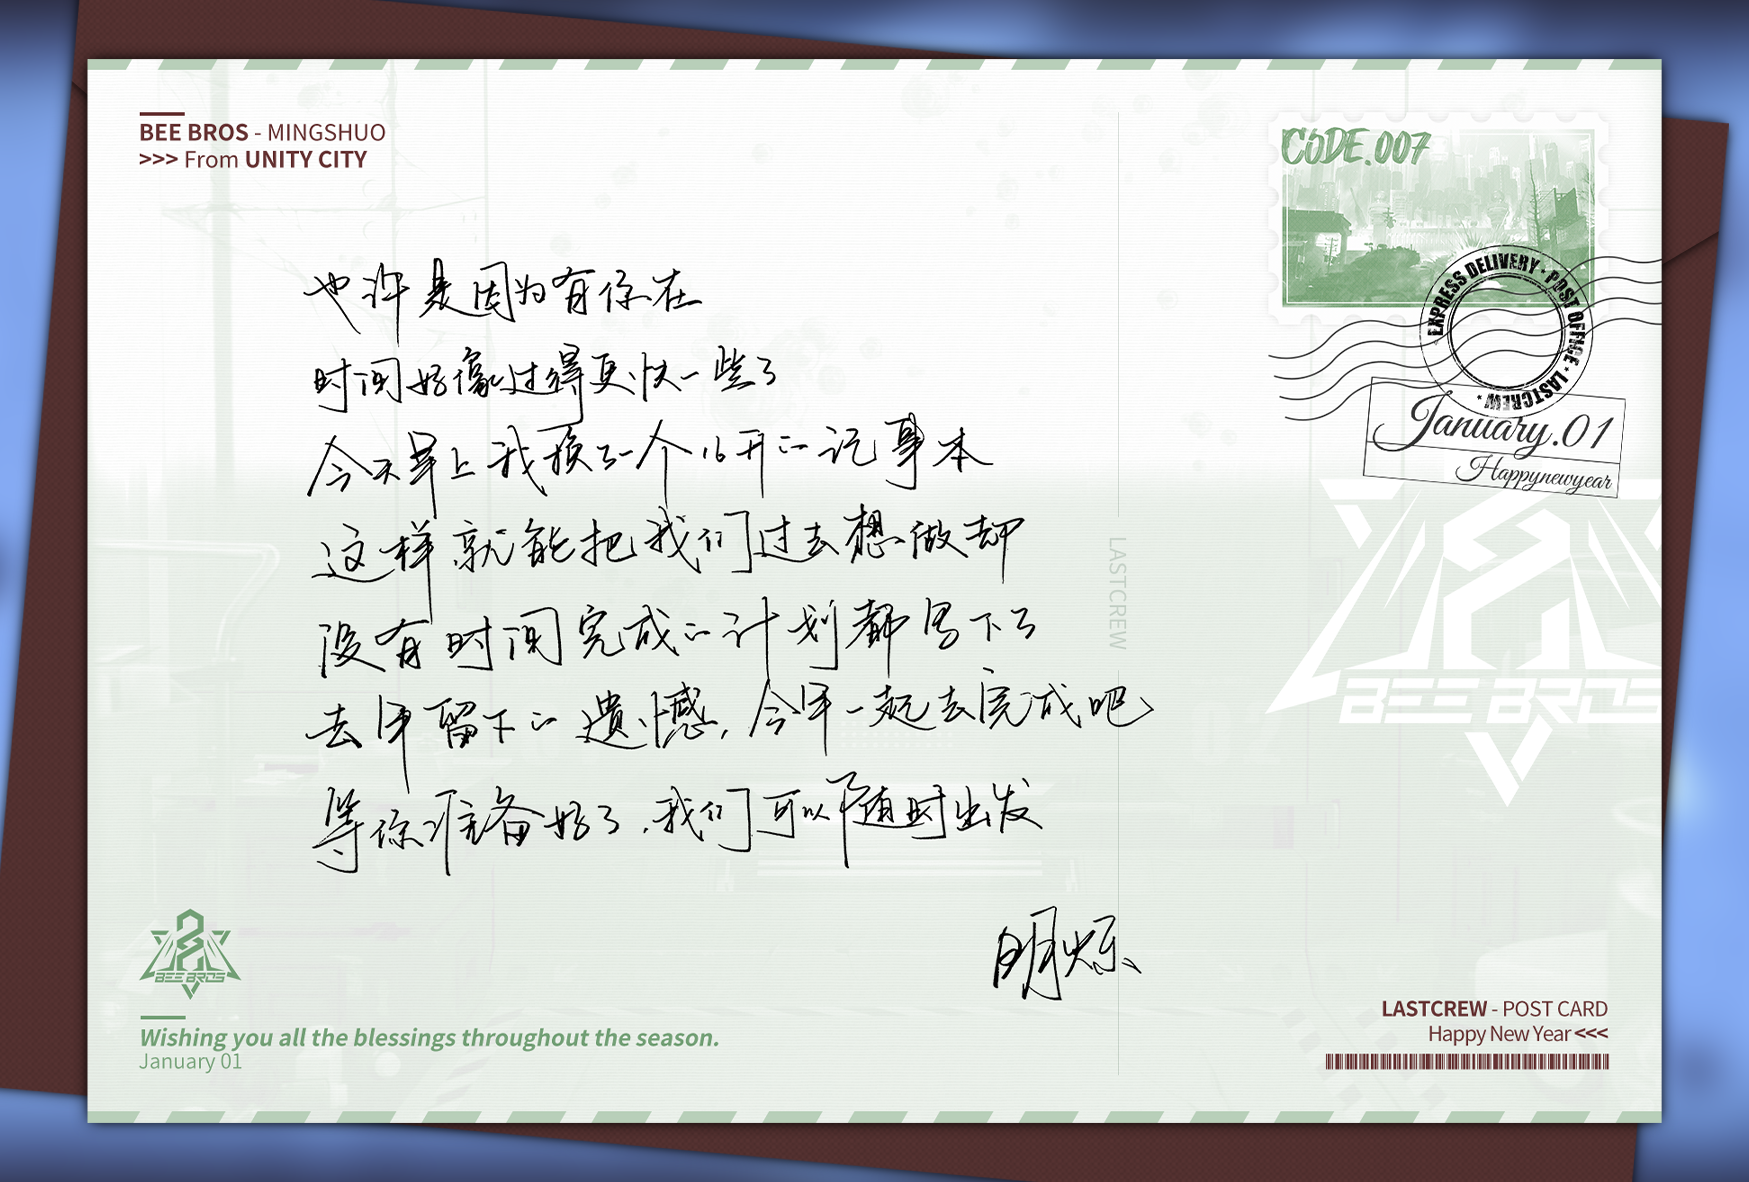 BEE BROS - MINGSHUO
>>> From UNITY CITY
CODE.007
EXPRESS DELIVERY · POST OFFICE · LASTCREW ·
January.01
Happynewyear
也许是因为有你在
时间好像过得更快一些了
今天早上我换了一个16开的记事本
这样就能把我们过去想做却
没有时间完成的计划都写下了
去年留下的遗憾,今年一起去完成吧
等你准备好了,我们可以随时出发
明烁
LASTCREW
BEE BROS
BEE BROS
Wishing you all the blessings throughout the season.
January 01
LASTCREW - POST CARD
Happy New Year <<<